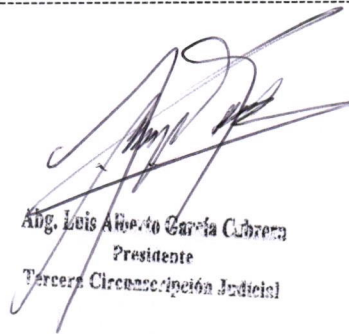 Abg. Luis Alberto García Cabrera
Presidente
Tercera Circunscripción Judicial